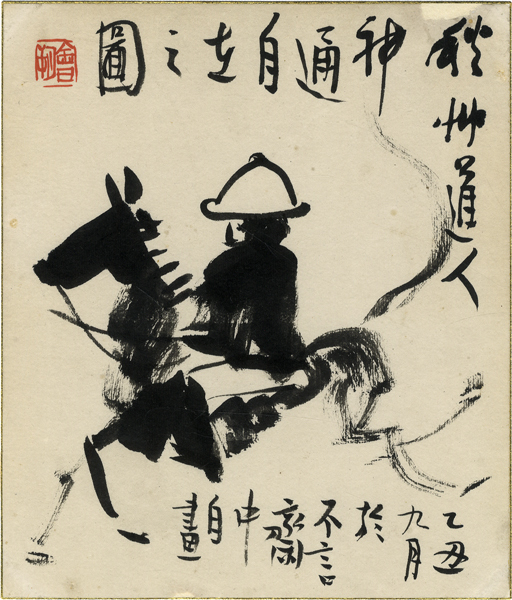 秋艸道人
神通自在之圖
乙丑
九月
於
不言
齋
中
自畫